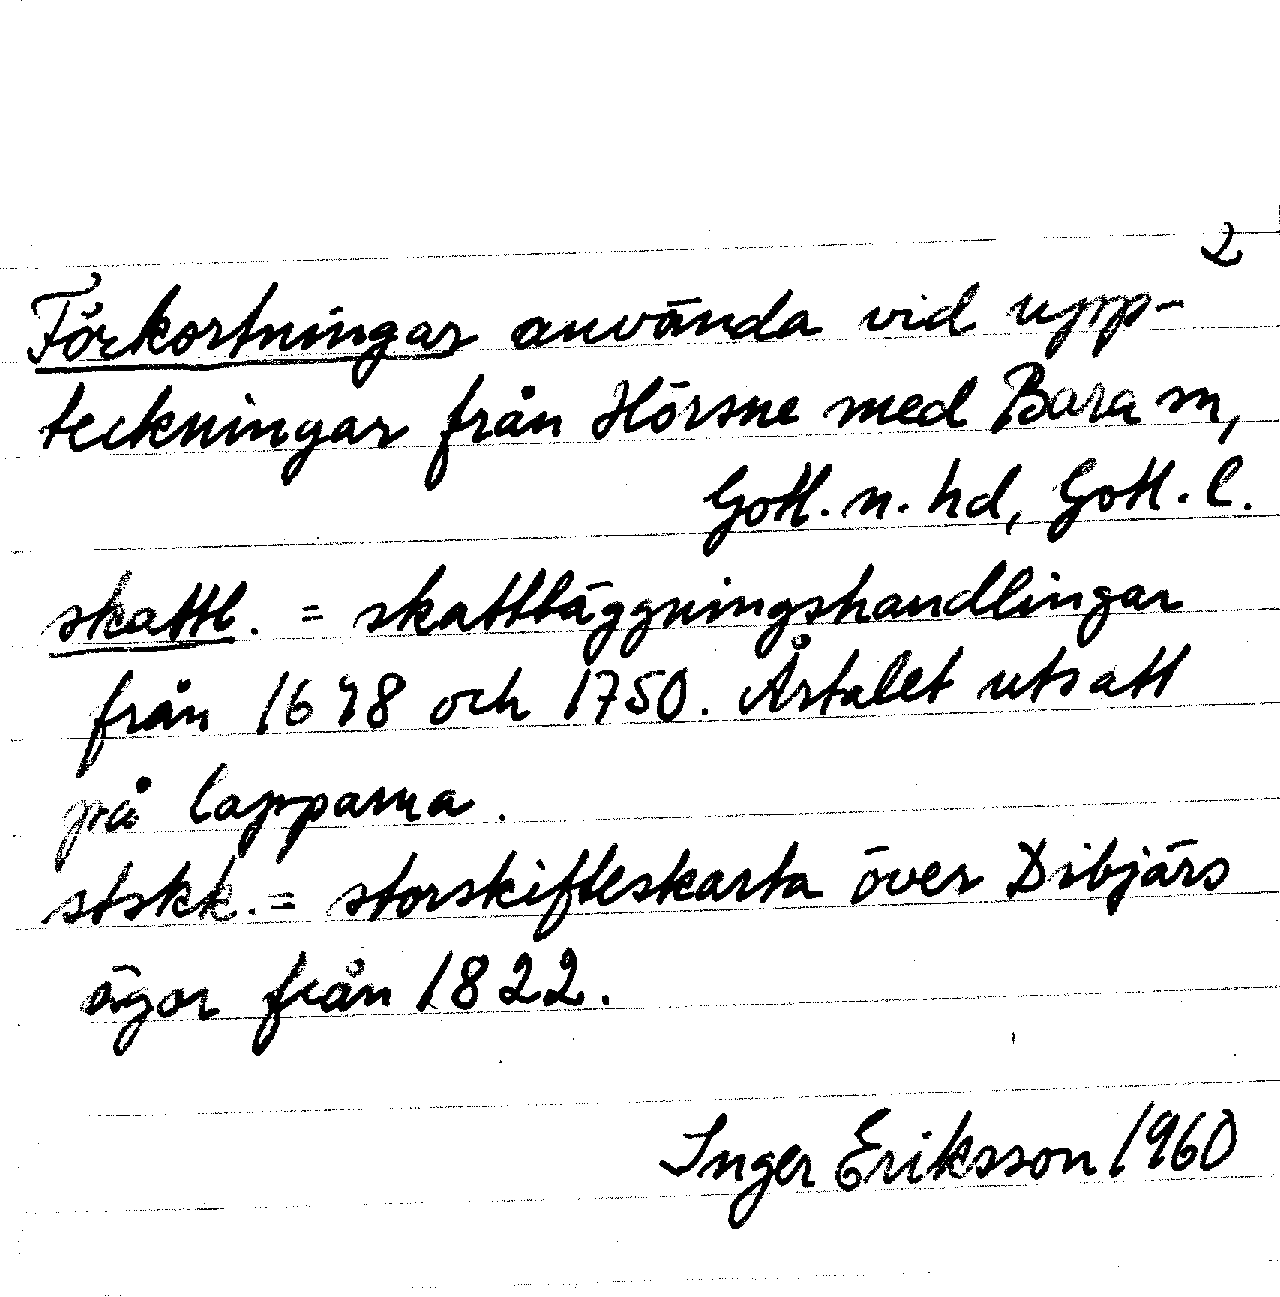 2
Förkortningar använda vid upp-
teckningar från Hörsne med Bara sn,
Gotl. n. hd, Gotl. l.
skattl. = skattläggningshandlingar
från 1648 och 1750. Årtalet utsatt
på lapparna.
stskk. = storskifteskarta över Dibjärs
ägor från 1822.
Inger Eriksson 1960